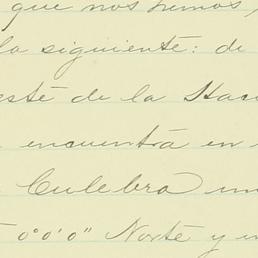 que nos hemos
la siguiente: de
este de la Haci
encuentra en
Culebra un
0°0'0" Norte y